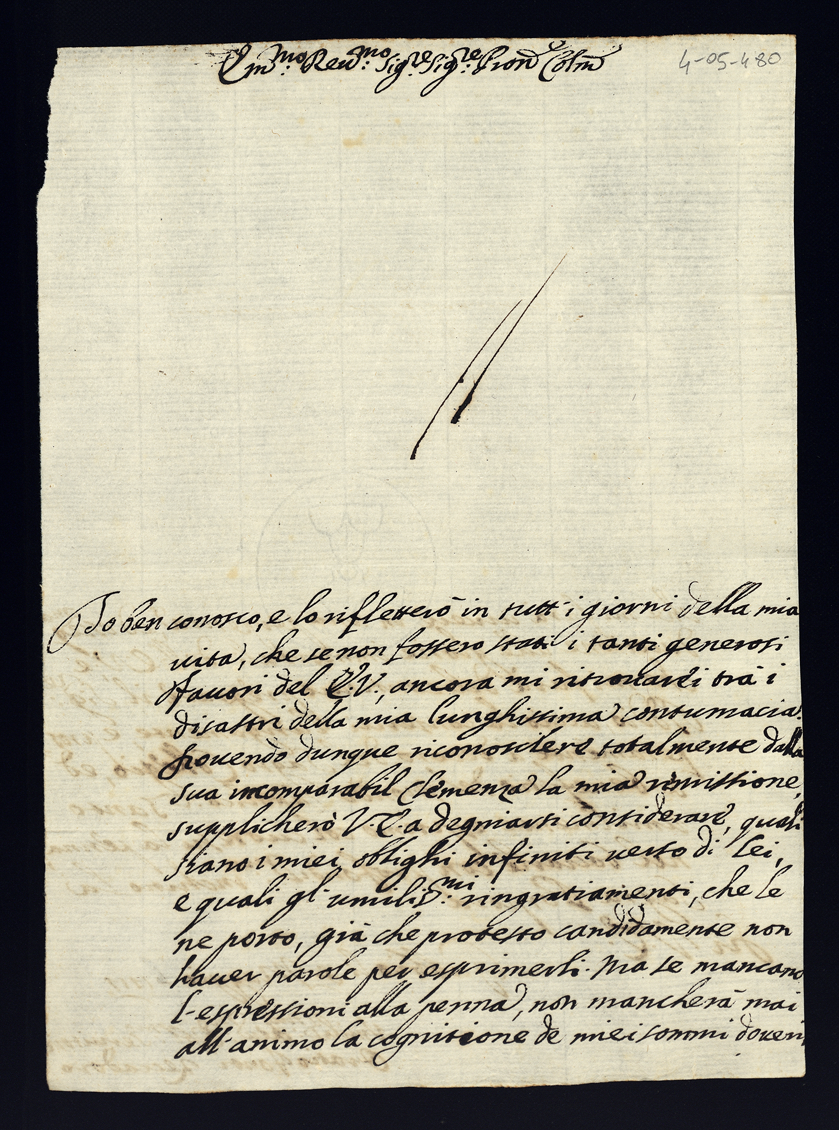 Em.mo Rev.mo Sig.re Sig.re Pron Colmo
4-05-480
Io ben conosco, e lo rifletterò in tutt'i giorni della mia
vita, che se non fossero stati i tanti generosi
favori del E.V., ancora mi ritrovarei trà i
disastri della mia lunghissima contumacia.
Dovendo dunque riconoscere totalmente dalla
sua incomparabil Clemenza la mia remissione,
supplicherò V.E. a degniarsi considerare, quali
siano i miei oblighi infiniti verso di Lei,
e quali gl'umiliss.mi ringratiamenti, che le
ne porto, già che protesto candidamente non
haver parole per esprimerli. Ma se mancano
l'espressioni alla penna, non mancherà mai
all'animo la cognitione de miei sommi doveri,